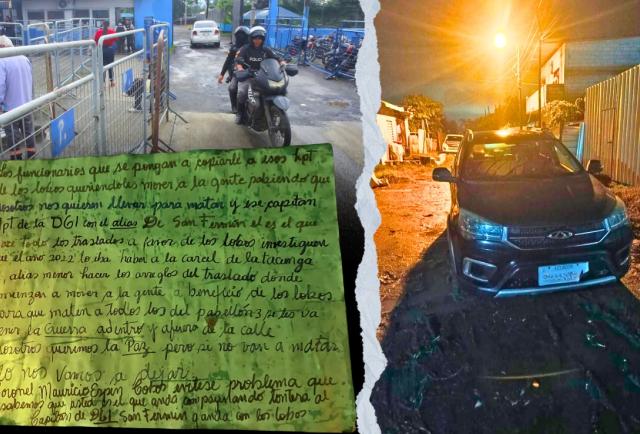 los funcionarios que se pongan a copiarle a esos hpt
de los lobos queriendoles mover a la gente sabiendo que
nosotros nos quieren llevar para matar y ese capitan
hpt de la DGI con el alias De San Fermin el es el que
todo los traslados a favor de los lobos investiguen
que el año 2022 lo iba haber a la carcel de latacunga
alias menor hacer los arreglos del traslado donde
comienzan a mover a la gente a beneficio de los lobos
para que maten a todos los del pabellon 3 si les va
la Guerra adentro y afuera de la calle
nosotros queremos la Paz pero si no van a matar
lo nos vamos a dejar
coronel Mauricio Espin Cobos evitese problema que
sabemos que usted es el que anda con
Capitan de DGI San Fermin y anda con los lobos